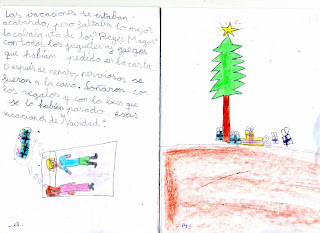 Las vacaciones se estaban
acabando, pero faltaba lo mejor:
la cabalgata de los "Reyes Magos"
con todos los juguetes y juegos
que habían pedido en la carta.
Después de cenar, nerviosos se
fueron a la cama. Soñaron con
los regalos y con lo bien que
se lo habían pasado esas
vacaciones de Navidad."
-13-
-14-